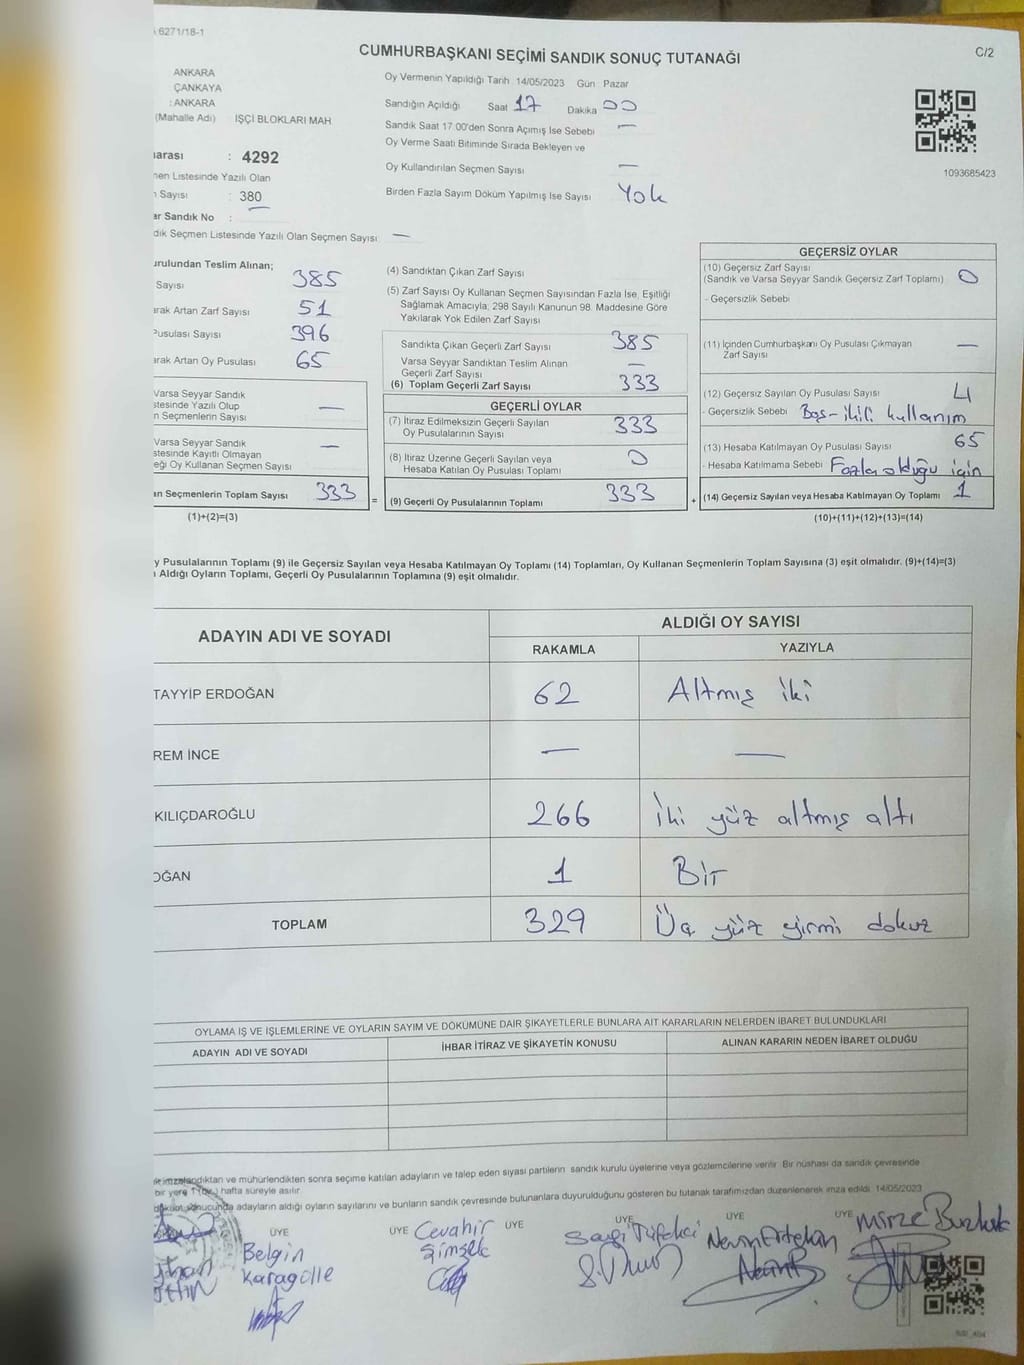 6271/18-1
CUMHURBAŞKANI SEÇİMİ SANDIK SONUÇ TUTANAĞI
C/2
ANKARA
ÇANKAYA
: ANKARA
(Mahalle Adı) İŞÇİ BLOKLARI MAH
arası : 4292
nen Listesinde Yazılı Olan
Sayısı : 380
ar Sandık No :
dık Seçmen Listesinde Yazılı Olan Seçmen Sayısı —
Oy Vermenin Yapıldığı Tarih 14/05/2023 Gün Pazar
Sandığın Açıldığı Saat 17 Dakika 00
Sandık Saat 17:00'den Sonra Açımış İse Sebebi —
Oy Verme Saati Bitiminde Sırada Bekleyen ve
Oy Kullandırılan Seçmen Sayısı —
Birden Fazla Sayım Döküm Yapılmış İse Sayısı Yok
1093685423
urulundan Teslim Alınan;
Sayısı 385
arak Artan Zarf Sayısı 51
Pusulası Sayısı 396
arak Artan Oy Pusulası 65
Varsa Seyyar Sandık
stesinde Yazılı Olup
n Seçmenlerin Sayısı —
Varsa Seyyar Sandık
stesinde Kayıtlı Olmayan
eği Oy Kullanan Seçmen Sayısı —
an Seçmenlerin Toplam Sayısı 333 =
(1)+(2)=(3)
(4) Sandıktan Çıkan Zarf Sayısı
(5) Zarf Sayısı Oy Kullanan Seçmen Sayısından Fazla İse, Eşitliği
Sağlamak Amacıyla; 298 Sayılı Kanunun 98. Maddesine Göre
Yakılarak Yok Edilen Zarf Sayısı
Sandıkta Çıkan Geçerli Zarf Sayısı 385
Varsa Seyyar Sandıktan Teslim Alınan
Geçerli Zarf Sayısı —
(6) Toplam Geçerli Zarf Sayısı 333
GEÇERLİ OYLAR
(7) İtiraz Edilmeksizin Geçerli Sayılan
Oy Pusulalarının Sayısı 333
(8) İtiraz Üzerine Geçerli Sayılan veya
Hesaba Katılan Oy Pusulası Toplamı 0
(9) Geçerli Oy Pusulalarının Toplamı 333 +
GEÇERSİZ OYLAR
(10) Geçersiz Zarf Sayısı
(Sandık ve Varsa Seyyar Sandık Geçersiz Zarf Toplamı) 0
- Geçersizlik Sebebi
(11) İçinden Cumhurbaşkanı Oy Pusulası Çıkmayan
Zarf Sayısı —
(12) Geçersiz Sayılan Oy Pusulası Sayısı 4
- Geçersizlik Sebebi Boş-ikili kullanım
(13) Hesaba Katılmayan Oy Pusulası Sayısı 65
- Hesaba Katılmama Sebebi Fazla olduğu için
(14) Geçersiz Sayılan veya Hesaba Katılmayan Oy Toplamı 1
(10)+(11)+(12)+(13)=(14)
y Pusulalarının Toplamı (9) ile Geçersiz Sayılan veya Hesaba Katılmayan Oy Toplamı (14) Toplamları, Oy Kullanan Seçmenlerin Toplam Sayısına (3) eşit olmalıdır. (9)+(14)=(3)
ı Aldığı Oyların Toplamı, Geçerli Oy Pusulalarının Toplamına (9) eşit olmalıdır.
ADAYIN ADI VE SOYADI
ALDIĞI OY SAYISI
RAKAMLA YAZIYLA
TAYYİP ERDOĞAN 62 Altmış iki
REM İNCE — —
KILIÇDAROĞLU 266 İki yüz altmış altı
OĞAN 1 Bir
TOPLAM 329 Üç yüz yirmi dokuz
OYLAMA İŞ VE İŞLEMLERİNE VE OYLARIN SAYIM VE DÖKÜMÜNE DAİR ŞİKAYETLERLE BUNLARA AİT KARARLARIN NELERDEN İBARET BULUNDUKLARI
ADAYIN ADI VE SOYADI İHBAR İTİRAZ VE ŞİKAYETİN KONUSU ALINAN KARARIN NEDEN İBARET OLDUĞU
imzalandıktan ve mühürlendikten sonra seçime katılan adayların ve talep eden siyasi partilerin sandık kurulu üyelerine veya gözlemcilerine verilir. Bir nüshası da sandık çevresinde
bir yere 1 (bir) hafta süreyle asılır.
sonucunda adayların aldığı oyların sayılarını ve bunların sandık çevresinde bulunanlara duyurulduğunu gösteren bu tutanak tarafımızdan düzenlenerek imza edildi. 14/05/2023
ÜYE ÜYE ÜYE ÜYE ÜYE ÜYE
Belgin
Karagülle
Cevahir
Şimşek
Tüfekci
Nevin Ertekan